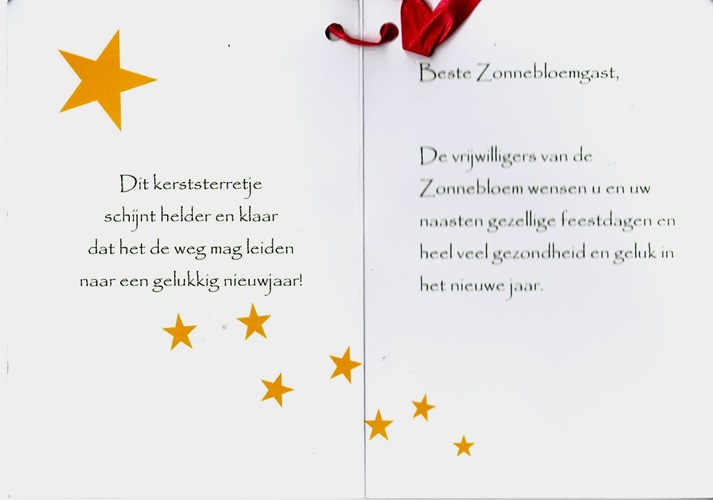 Dit kerststerretje
schijnt helder en klaar
dat het de weg mag leiden
naar een gelukkig nieuwjaar!
Beste Zonnebloemgast,
De vrijwilligers van de
Zonnebloem wensen u en uw
naasten gezellige feestdagen en
heel veel gezondheid en geluk in
het nieuwe jaar.